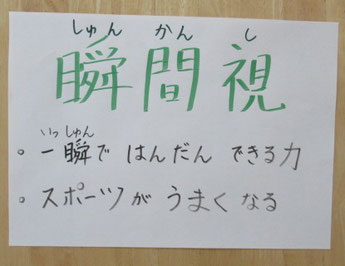 しゅん かん し
瞬間視
いっしゅん
。一瞬で はんだん できる力
。スポーツが うまく なる